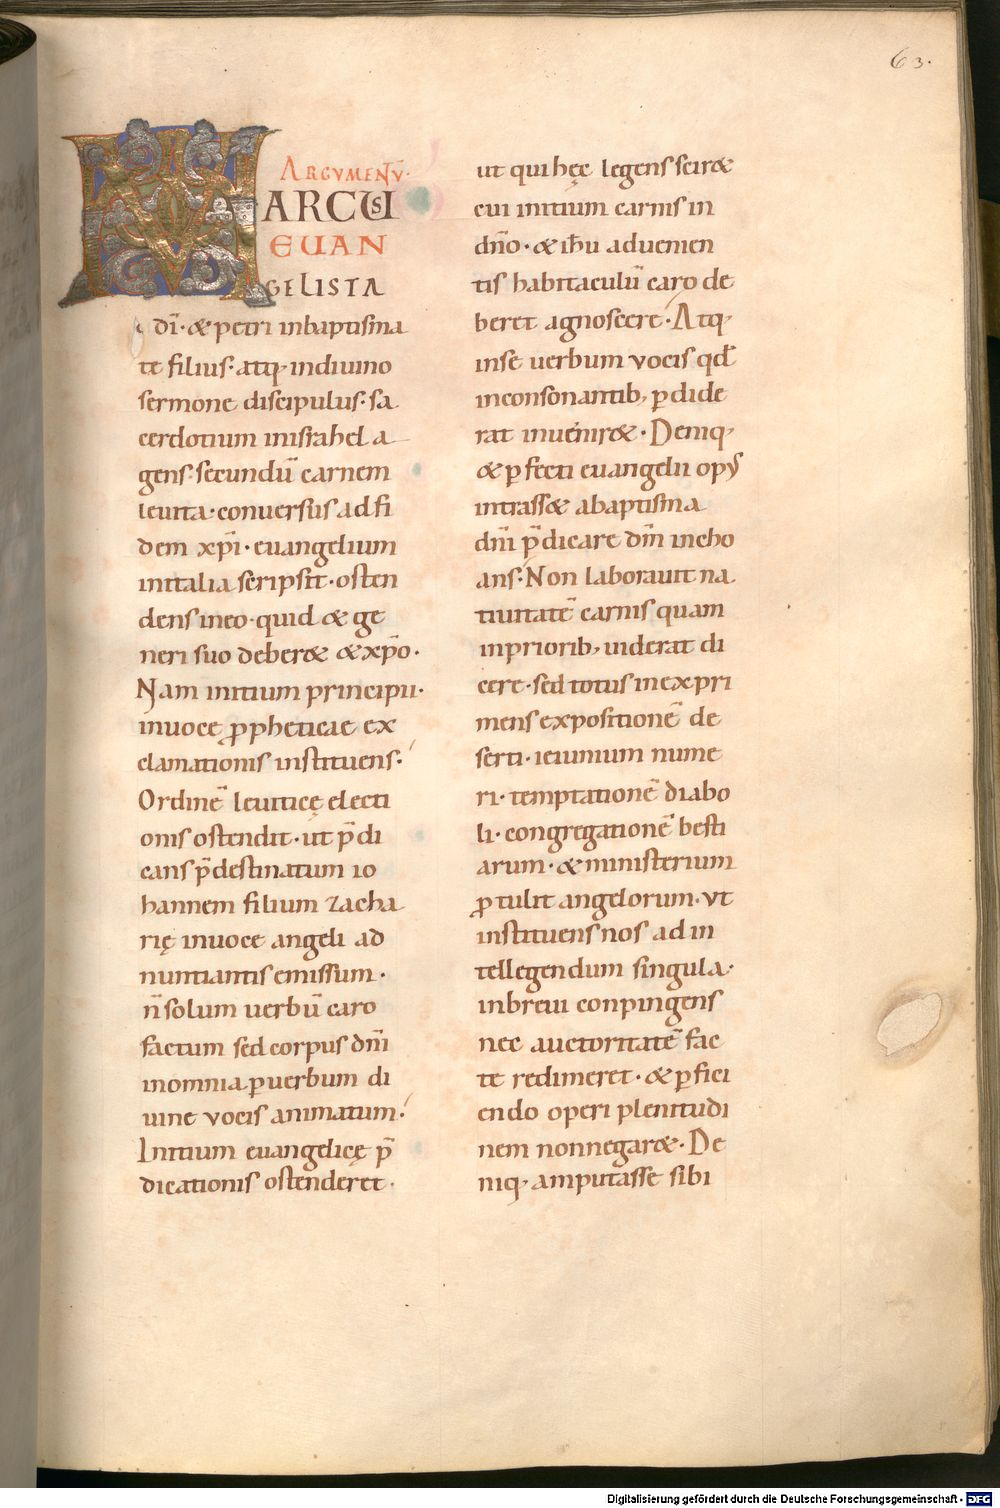 63.
ARGVMENTV̄·
MARCUS
EUAN
GELISTA
dī·&petri inbaptisma
te filius·atq; indiuino
sermone discipulus·sa
cerdotium inisrahel a
gens·secundū carnem
leuita·conuersus adfi
dem xp̄i·euangelium
initalia scripsit·osten
dens ineo·quid & ge
neri suo deber& &xp̄o·
Nam initium principii·
inuoce ꝓpheticae ex
clamationis instituens·
Ordinē leuiticę electi
onis ostendit·ut p̄di
cans p̄destinatum io
hannem filium zacha
rię inuoce angeli ad
nuntiantis emissum·
n̄ solum uerbū caro
factum sed corpus dn̄i
inomnia ꝑuerbum di
uine vocis animatum·
Initium euangelicę p̄
dicationis ostenderet·
ut qui hęc legens scir&
cui initium carnis in
dn̄o·&ih̄u aduenien
tis habitaculū caro de
beret agnoscere·Atq;
inse uerbum vocis qd̄
inconsonantib; ꝑdide
rat inuenir&·Deniq;
&ꝑfecti euangelii opus
intrass& abaptisma
dn̄i p̄dicare dm̄ incho
ans·Non laborauit na
tiuitatē carnis quam
inpriorib; uiderat di
cere·sed totus inexpri
mens expositionē de
serti·ieiunium nume
ri·temptationē diabo
li·congregationē besti
arum·&ministerium
ꝓtulit angelorum·vt
instituens nos ad in
tellegendum singula·
inbreui conpingens
nec auctoritatē fac
te redimeret·&ꝑfici
endo operi plenitudi
nem nonnegar&·De
niq; amputasse sibi
Digitalisierung gefördert durch die Deutsche Forschungsgemeinschaft - DFG